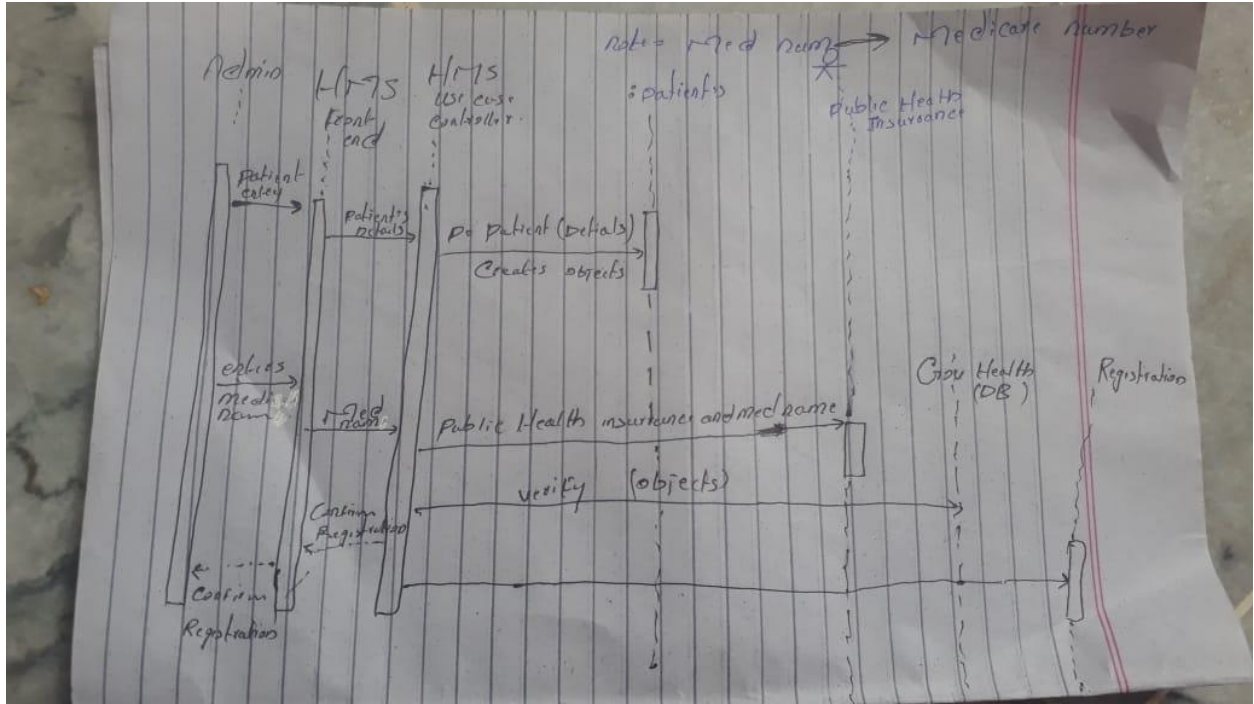 note = Med num → Medicare number
Admin
HMS
Front
end
HMS
Use case
Controller.
: patients
Public Health
Insurance
Patient
entry
Patient's
Details
Do Patient (Detials)
Creates objects
Gov Health
(DB)
Registration
enters
Med
num
Public Health insurance and med name
verify (objects)
Confirm
Registration
Confirm
Registration